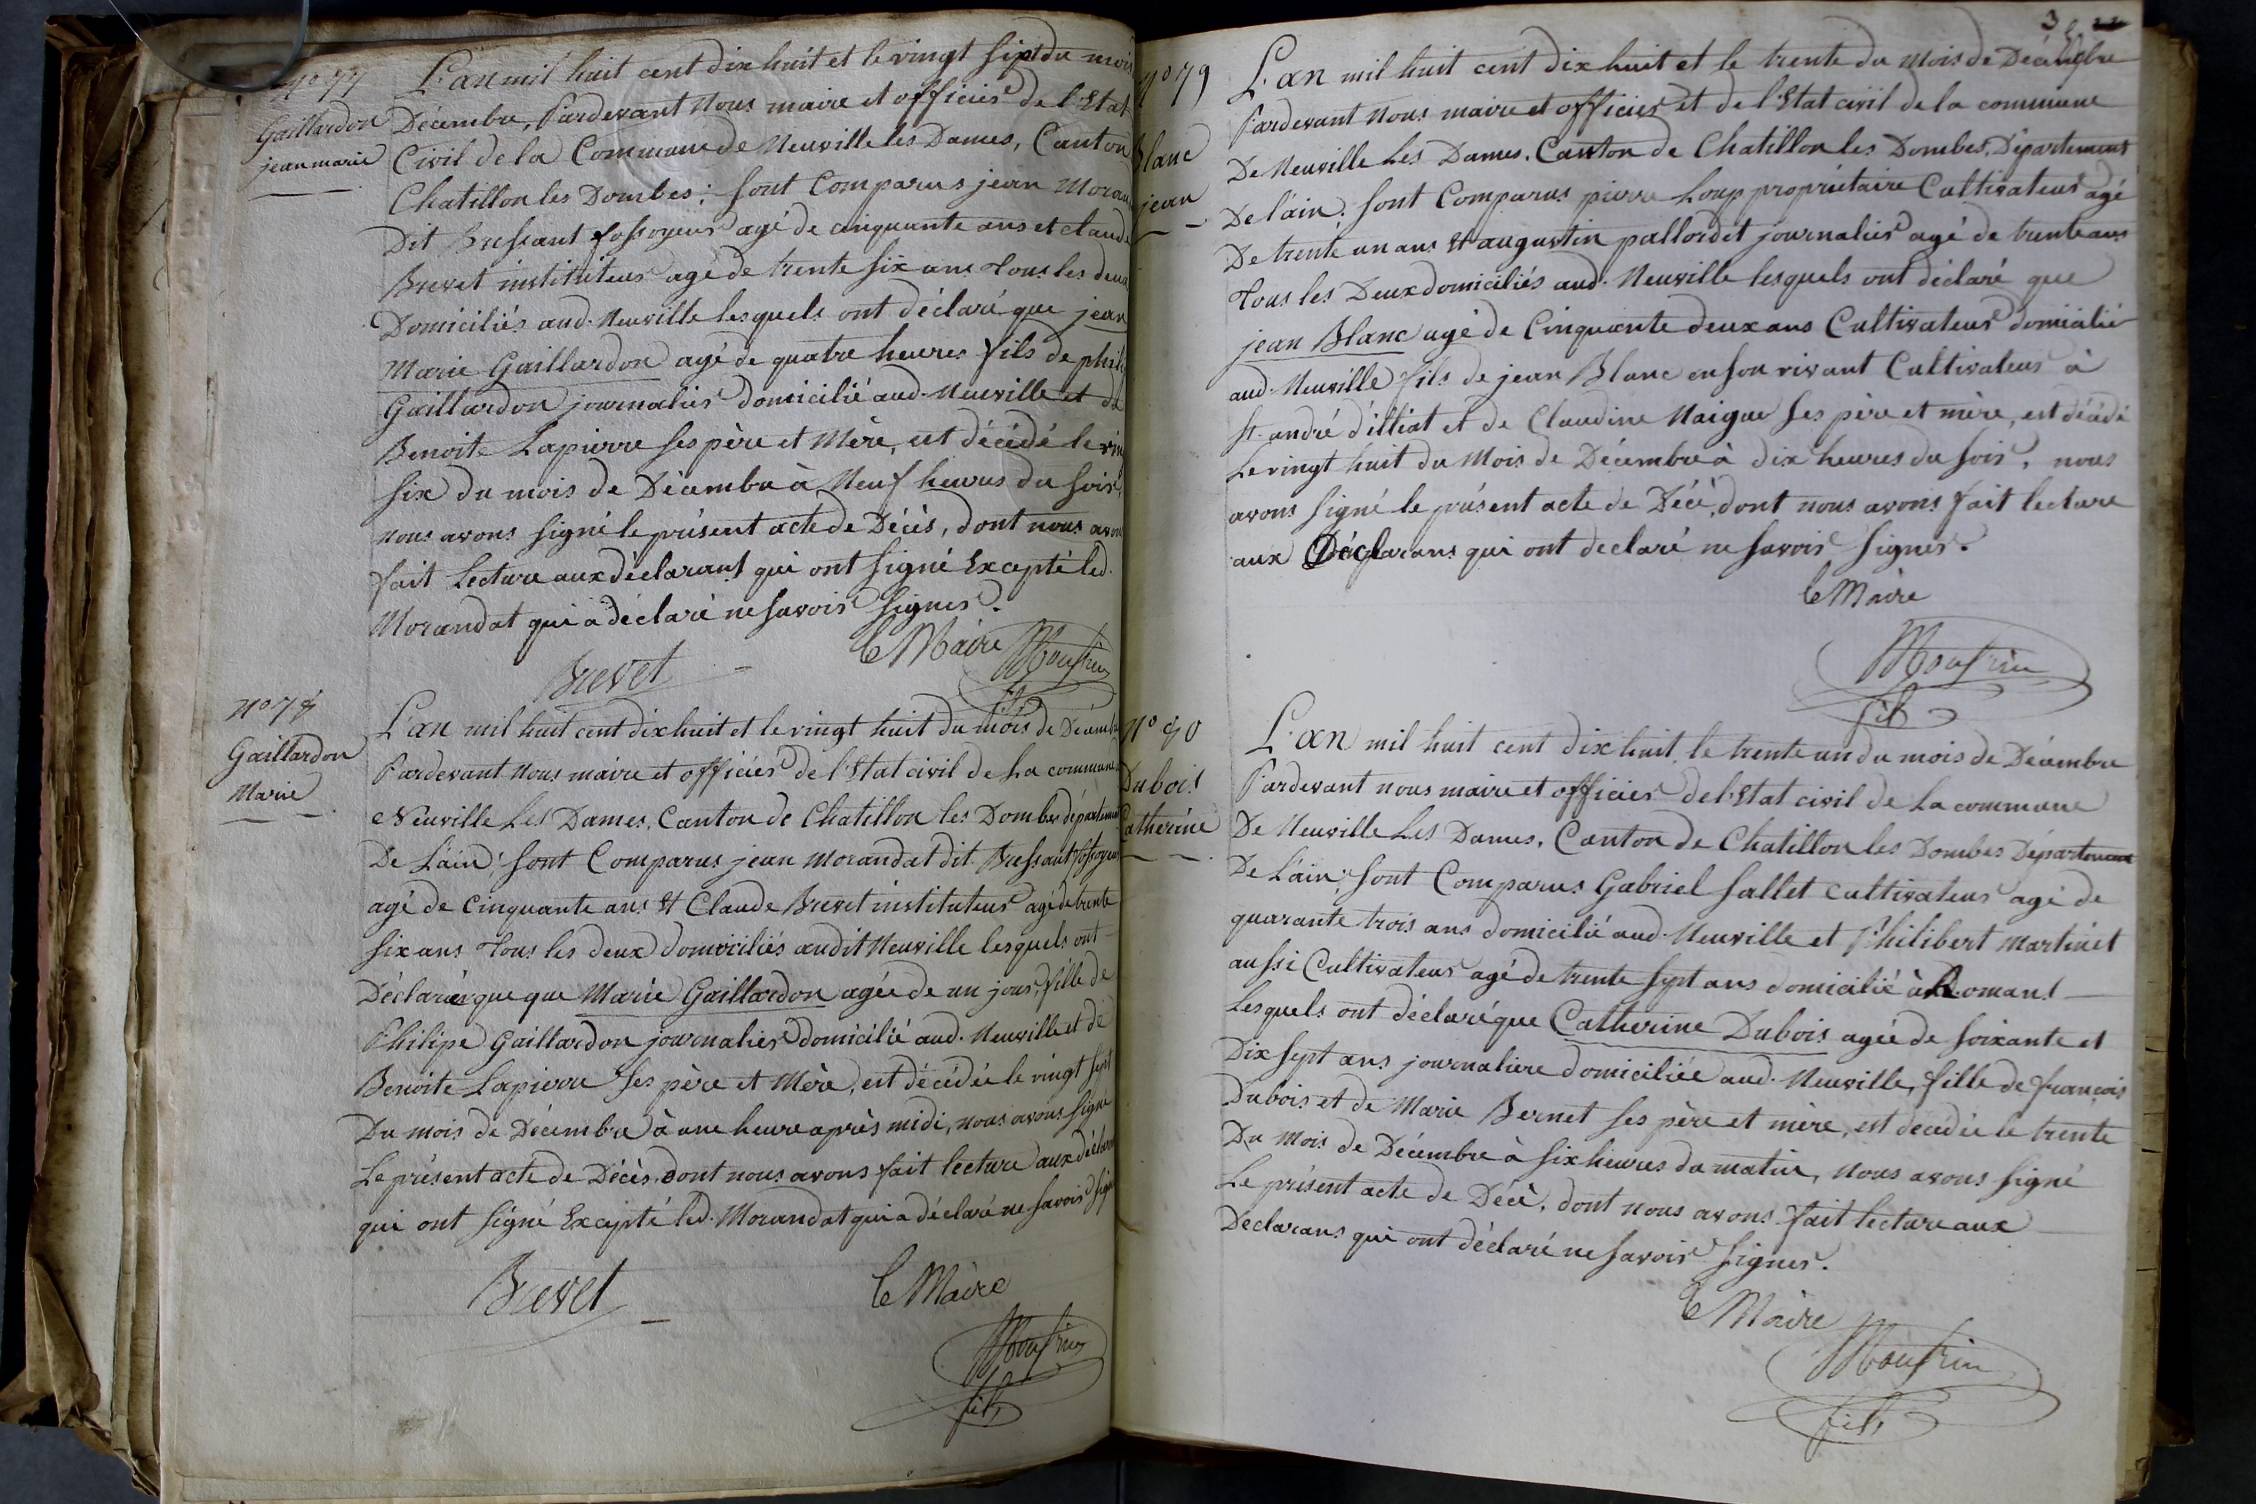 N° 77
Gaillardon
jean marie
L'an mil huit cent dix huit et le vingt sept du mois
Décembre, Pardevant Nous maire et officier de l'Etat
Civil de la Commune de Neuville les Dames, Canton
Chatillon les Dombes; sont Comparus jean Moran
Dit Bressant fossoyeur agé de cinquante ans et claude
Brevet instituteur agé de trente six ans tous les deux
Domiciliés aud. Neuville lesquels ont déclaré que jean
Marie Gaillardon agé de quatre heures fils de phili
Gaillardon journalier domicilié aud. Neuville et de
Benoite Lapierre ses père et Mère, est décédé le vin
six du mois de Décembre à Neuf heures du soir,
nous avons signé le présent acte de Décès, dont nous avons
fait Lecture aux déclarant qui ont signé Excepté led.
Morandat qui a déclaré ne savoir signer.
Brevet
le Maire
fils
N° 78
Gaillardon
Marie
L'an mil huit cent dix huit et le vingt huit du mois de Décembre
Pardevant Nous maire et officier de l'Etat civil de la commune
Neuville Les Dames, Canton de Chatillon les Dombes département
De L'ain; sont Comparus jean Morandat dit Bressant fossoyeur
agé de Cinquante ans Et Claude Brevet instituteur agé de trente
six ans tous les deux domiciliés audit Neuville lesquels ont
Déclarés que que Marie Gaillardon agée de un jour, fille de
Philipe Gaillardon journalier domicilié aud. Neuville et de
Benoite Lapierre ses père et Mère, est décédée le vingt sept
Du mois de Décembre à une heure après midi, nous avons signé
Le présent acte de Décès, dont nous avons fait lecture aux déclar
qui ont signé Excepté led. Morandat qui a déclaré ne savoir sign
Brevet
le Maire
fils
3
N° 79
Blanc
jean
L'an mil huit cent dix huit et le trente du mois de Décembre
Pardevant Nous maire et officier et de l'Etat civil de la commune
De Neuville Les Dames, Canton de Chatillon les Dombes, Département
De l'ain; sont Comparus pierre Loup propriétaire Cultivateur agé
De trente un ans Et augustin pallordet journalier agé de trente ans
tous les Deux domiciliés aud. Neuville lesquels ont déclaré que
jean Blanc agé de Cinquante deux ans Cultivateur domicilié
aud. Neuville fils de jean Blanc en son vivant Cultivateur à
St. andré d'illiat et de Claudine Naigue ses père et mère, est décédé
Le vingt huit du Mois de Décembre à dix heures du soir, nous
avons signé le présent acte de Décè, dont nous avons fait lecture
aux Déclarans qui ont declaré ne savoir signer.
le Maire
fils
N° 80
Dubois
Catherine
L'an mil huit cent dix huit, le trente un du mois de Décembre
Pardevant nous maire et officier de l'Etat civil de La commune
De Neuville Les Dames, Canton de Chatillon les Dombes Département
De L'ain, sont Comparus Gabriel Sallet Cultivateur agé de
quarante trois ans domicilié aud. Neuville et Philibert Martinet
aussi Cultivateur agé de trente sept ans domicilié à Romans
Lesquels ont déclaré que Catherine Dubois agée de soixante et
Dix sept ans journaliere domiciliée aud. Neuville, fille de françois
Dubois et de Marie Bernet ses père et mère, est décédée le trente
Du Mois de Décembre à six heures du matin, nous avons signé
Le présent acte de Décè, dont nous avons fait lecture aux
Declarans qui ont déclaré ne savoir signer.
le Maire
fils